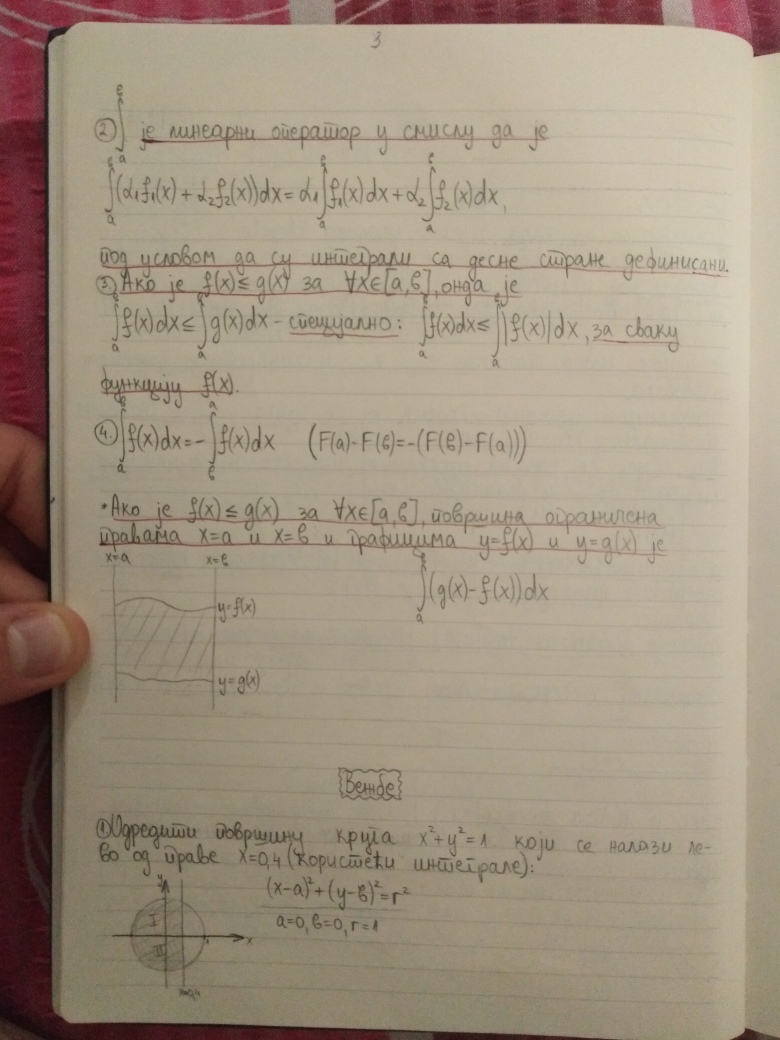 3
2) ∫ₐᵇ је линеарни оператор у смислу да је
∫ₐᵇ(α₁f₁(x) + α₂f₂(x))dx = α₁∫ₐᵇf₁(x)dx + α₂∫ₐᵇf₂(x)dx,
под условом да су интеграли са десне стране дефинисани.
3) Ако је f(x) ≤ g(x) за ∀x∈[a,в], онда је
∫ₐᵇf(x)dx ≤ ∫ₐᵇg(x)dx - специјално: ∫ₐᵇf(x)dx ≤ ∫ₐᵇ|f(x)|dx, за сваку
функцију f(x).
4.) ∫ₐᵇf(x)dx = -∫ᵇₐf(x)dx (F(a)-F(в)=-(F(в)-F(a)))
•Ако је f(x) ≤ g(x) за ∀x∈[a,в], површина ограничена
правама x=a и x=в и графицима y=f(x) и y=g(x) је
x=a x=в
∫ₐᵇ(g(x)-f(x))dx
y=f(x)
y=g(x)
Вежбе
1) Одредити површину круга x²+y²=1 који се налази ле-
во од праве x=0,4 (користећи интеграле):
(x-a)²+(y-в)²=r²
a=0, в=0, r=1
y
I
II
1
x
x=0,4